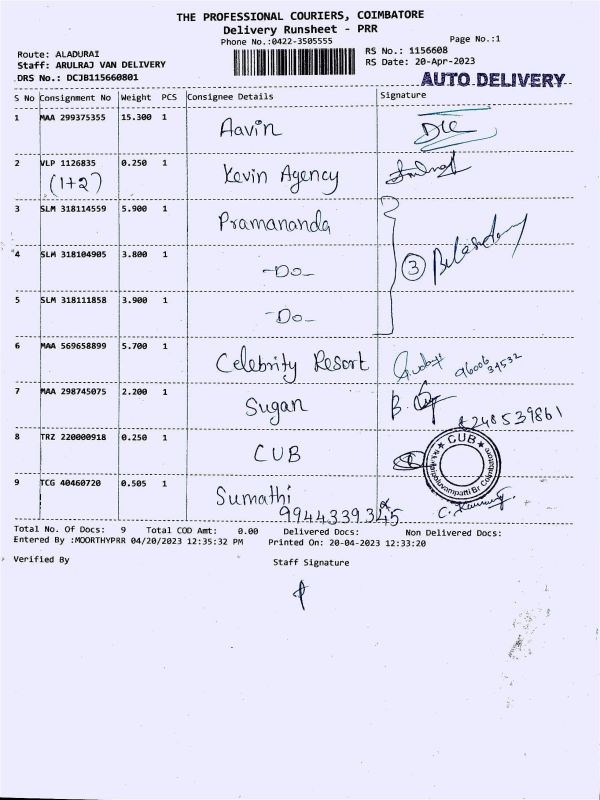 THE PROFESSIONAL COURIERS, COIMBATORE
Delivery Runsheet - PRR
Phone No.:0422-3505555
Page No.:1
Route: ALADURAI
RS No.: 1156608
Staff: ARULRAJ VAN DELIVERY
RS Date: 20-Apr-2023
DRS No.: DCJB115660801
AUTO DELIVERY
S No Consignment No Weight PCS Consignee Details Signature
1 MAA 299375355 15.300 1 Aavin
2 VLP 1126835 0.250 1 Kevin Agency
(1+2)
3 SLM 318114559 5.900 1 Pramananda
4 SLM 318104905 3.800 1 -Do-
3
5 SLM 318111858 3.900 1 -Do-
6 MAA 569658899 5.700 1 Celebrity Resort
96006 34532
7 MAA 298745075 2.200 1 Sugan
8248539861
8 TRZ 220000918 0.250 1 CUB
CUB
9 TCG 40460720 0.505 1 Sumathi
Total No. Of Docs: 9 Total COD Amt: 0.00 Delivered Docs: Non Delivered Docs:
Entered By :MOORTHYPRR 04/20/2023 12:35:32 PM Printed On: 20-04-2023 12:33:20
Verified By Staff Signature